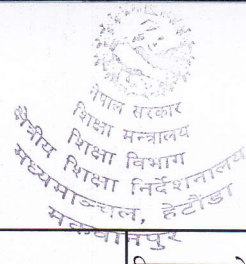 नेपाल सरकार
शिक्षा मन्त्रालय
शिक्षा विभाग
क्षेत्रीय शिक्षा निर्देशनालय
मध्यमाञ्चल, हेटौंडा
मकवानपुर